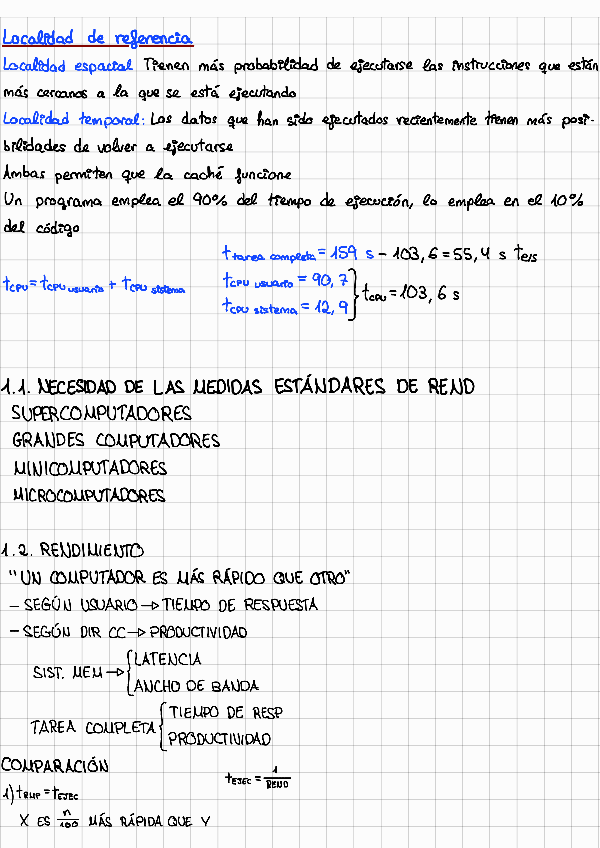 Localidad de referencia
Localidad espacial Tienen más probabilidad de ejecutarse las instrucciones que están
más cercanos a la que se está ejecutando
Localidad temporal: Los datos que han sido ejecutados recientemente tienen más posi-
bilidades de volver a ejecutarse
Ambas permiten que la caché funcione
Un programa emplea el 90% del tiempo de ejecución, lo emplea en el 10%
del código
t tarea completa = 159 s - 103,6 = 55,4 s t E/S
t CPU = t CPU usuario + t CPU sistema
t CPU usuario = 90,7
t CPU sistema = 12,9
t CPU = 103,6 s
1.1. NECESIDAD DE LAS MEDIDAS ESTÁNDARES DE REND
SUPERCOMPUTADORES
GRANDES COMPUTADORES
MINICOMPUTADORES
MICROCOMPUTADORES
1.2. RENDIMIENTO
"UN COMPUTADOR ES MÁS RÁPIDO QUE OTRO"
- SEGÚN USUARIO → TIEMPO DE RESPUESTA
- SEGÚN DIR CC → PRODUCTIVIDAD
SIST. MEM → { LATENCIA
ANCHO DE BANDA
TAREA COMPLETA { TIEMPO DE RESP
PRODUCTIVIDAD
COMPARACIÓN
t EJEC = 1/REND
1) t = t EJEC
X ES n/100 MÁS RÁPIDA QUE Y